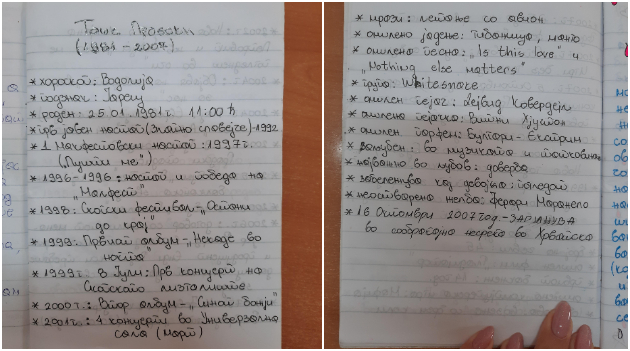 Тоше Проески
(1981 - 2007)
* хороскоп: Водолија
* подзнак: Јарец
* роден: 25.01.1981г. 11:00 h
* прв јавен настап (Златно славејче) - 1992
* 1 Макфестовски настап: 1997г.
(„Пушти ме")
* 1996-1996: настап и победа на
„Мелфест"
* 1998: Скопски фестивал - „Остани
до крај"
* 1999: Првиот албум - „Некаде во
ноќта"
* 1999г. 8 Јули: Прв концерт на
Скопското
* 2000г.: Втор албум - „Синот божји"
* 2001г.: 4 концерти во Универзална
сала (март)
* мрази: летање со авион
* омилено јадење: манџа
* омилена песна: „Is this love" и
„Nothing else matters"
* група: Whitesnake
* омилен пејач: Дејвид Ковердејл
* омилена пејачка: Витни Хјустон
* омилен парфем:
* вљубен: во музиката и
* најважно во љубов: доверба
* забележува кај девојка: поглед
* неостварена желба: Ферари Маранело
* 16 Октомври 2007 год. - ЗАГИНУВА
во сообраќајна несреќа во Хрватска